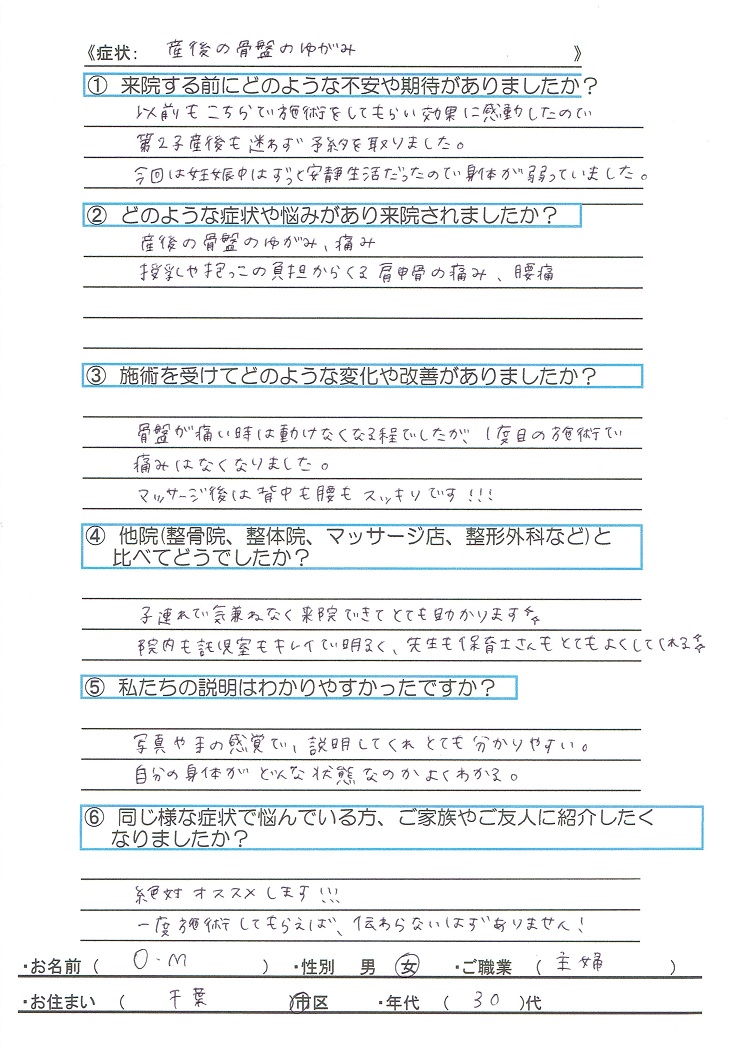 《症状: 産後の骨盤のゆがみ 》
① 来院する前にどのような不安や期待がありましたか？
以前もこちらで施術をしてもらい効果に感動したので
第2子産後も迷わず予約を取りました。
今回は妊娠中はずっと安静生活だったので身体が弱っていました。
② どのような症状や悩みがあり来院されましたか？
産後の骨盤のゆがみ、痛み
授乳や抱っこの負担からくる肩甲骨の痛み、腰痛
③ 施術を受けてどのような変化や改善がありましたか？
骨盤が痛い時は動けなくなる程でしたが、1度目の施術で
痛みはなくなりました。
マッサージ後は背中も腰もスッキリです!!!
④ 他院(整骨院、整体院、マッサージ店、整形外科など)と
比べてどうでしたか？
子連れで気兼ねなく来院できてとても助かります☆
院内も託児室もキレイで明るく、先生も保育士さんもとてもよくしてくれる☆
⑤ 私たちの説明はわかりやすかったですか？
写真や手の感覚で、説明してくれとても分かりやすい。
自分の身体がどんな状態なのかよくわかる。
⑥ 同じ様な症状で悩んでいる方、ご家族やご友人に紹介したく
なりましたか？
絶対オススメします!!!
一度施術してもらえば、伝わらないはずありません!
・お名前 ( O.M ) ・性別 男 女 ・ご職業 ( 主婦 )
・お住まい ( 千葉 市区 ・年代 ( 30 )代